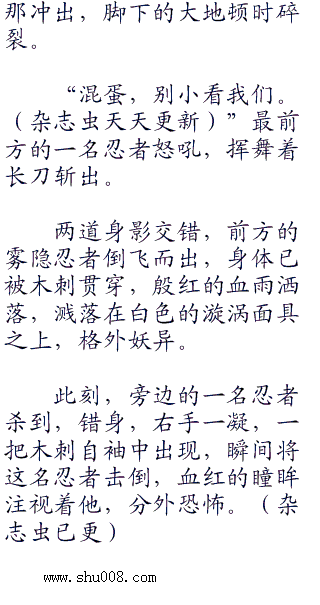 那冲出，脚下的大地顿时碎
裂。
“混蛋，别小看我们。
（杂志虫天天更新）”最前
方的一名忍者怒吼，挥舞着
长刀斩出。
两道身影交错，前方的
雾隐忍者倒飞而出，身体已
被木刺贯穿，殷红的血雨洒
落，溅落在白色的漩涡面具
之上，格外妖异。
此刻，旁边的一名忍者
杀到，错身，右手一凝，一
把木刺自袖中出现，瞬间将
这名忍者击倒，血红的瞳眸
注视着他，分外恐怖。（杂
志虫已更）
www.shu008.com